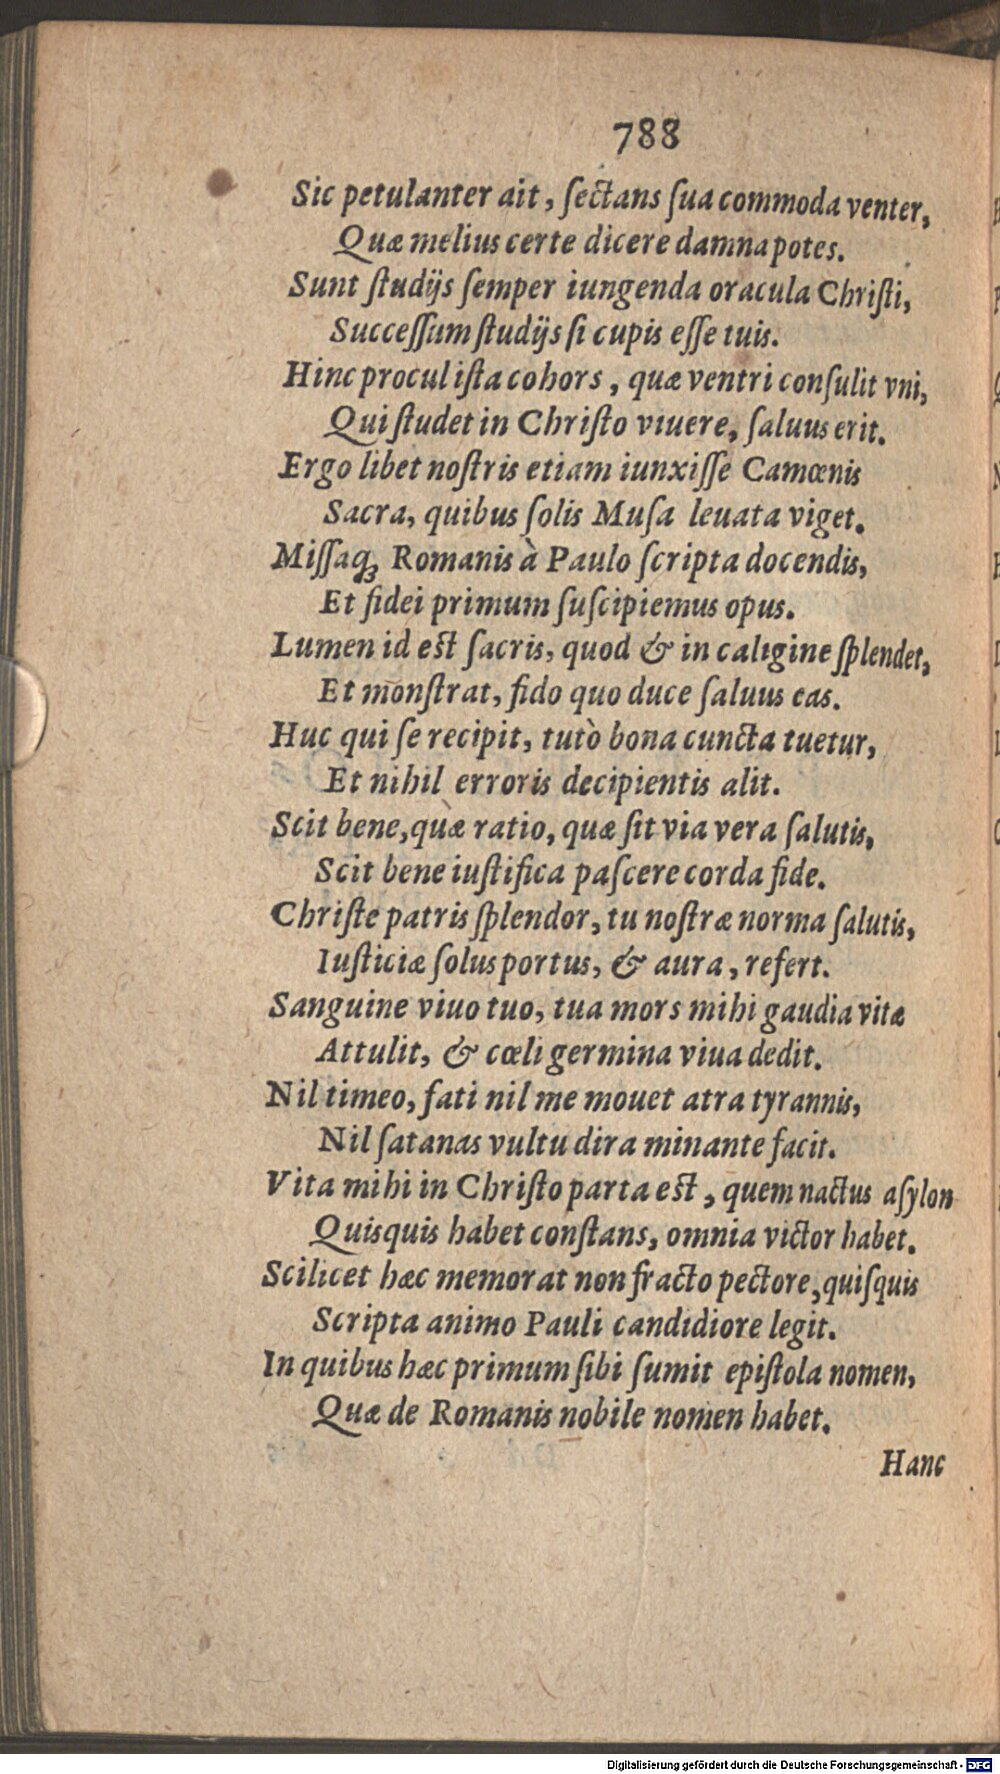 788
Sic petulanter ait, ſectans ſua commoda venter,
Quæ melius certe dicere damna potes.
Sunt ſtudijs ſemper iungenda oracula Chriſti,
Succeſſum ſtudijs ſi cupis eſſe tuis.
Hinc procul iſta cohors, quæ ventri conſulit vni,
Qui ſtudet in Chriſto viuere, ſaluus erit.
Ergo libet noſtris etiam iunxiſſe Camœnis
Sacra, quibus ſolis Muſa leuata viget.
Miſſaq́; Romanis à Paulo ſcripta docendis,
Et fidei primum ſuſcipiemus opus.
Lumen id eſt ſacris, quod & in caligine ſplendet,
Et monſtrat, fido quo duce ſaluus eas.
Huc qui ſe recipit, tutò bona cuncta tuetur,
Et nihil erroris decipientis alit.
Scit bene, quæ ratio, quæ ſit via vera ſalutis,
Scit bene iuſtifica paſcere corda fide.
Chriſte patris ſplendor, tu noſtræ norma ſalutis,
Iuſticiæ ſolus portus, & aura, refert.
Sanguine viuo tuo, tua mors mihi gaudia vitæ
Attulit, & cœli germina viua dedit.
Nil timeo, fati nil me mouet atra tyrannis,
Nil ſatanas vultu dira minante facit.
Vita mihi in Chriſto parta eſt, quem nactus aſylon
Quisquis habet conſtans, omnia victor habet.
Scilicet hæc memorat non fracto pectore, quiſquis
Scripta animo Pauli candidiore legit.
In quibus hæc primum ſibi ſumit epiſtola nomen,
Quæ de Romanis nobile nomen habet.
Hanc
Digitalisierung gefördert durch die Deutsche Forschungsgemeinschaft - DFG